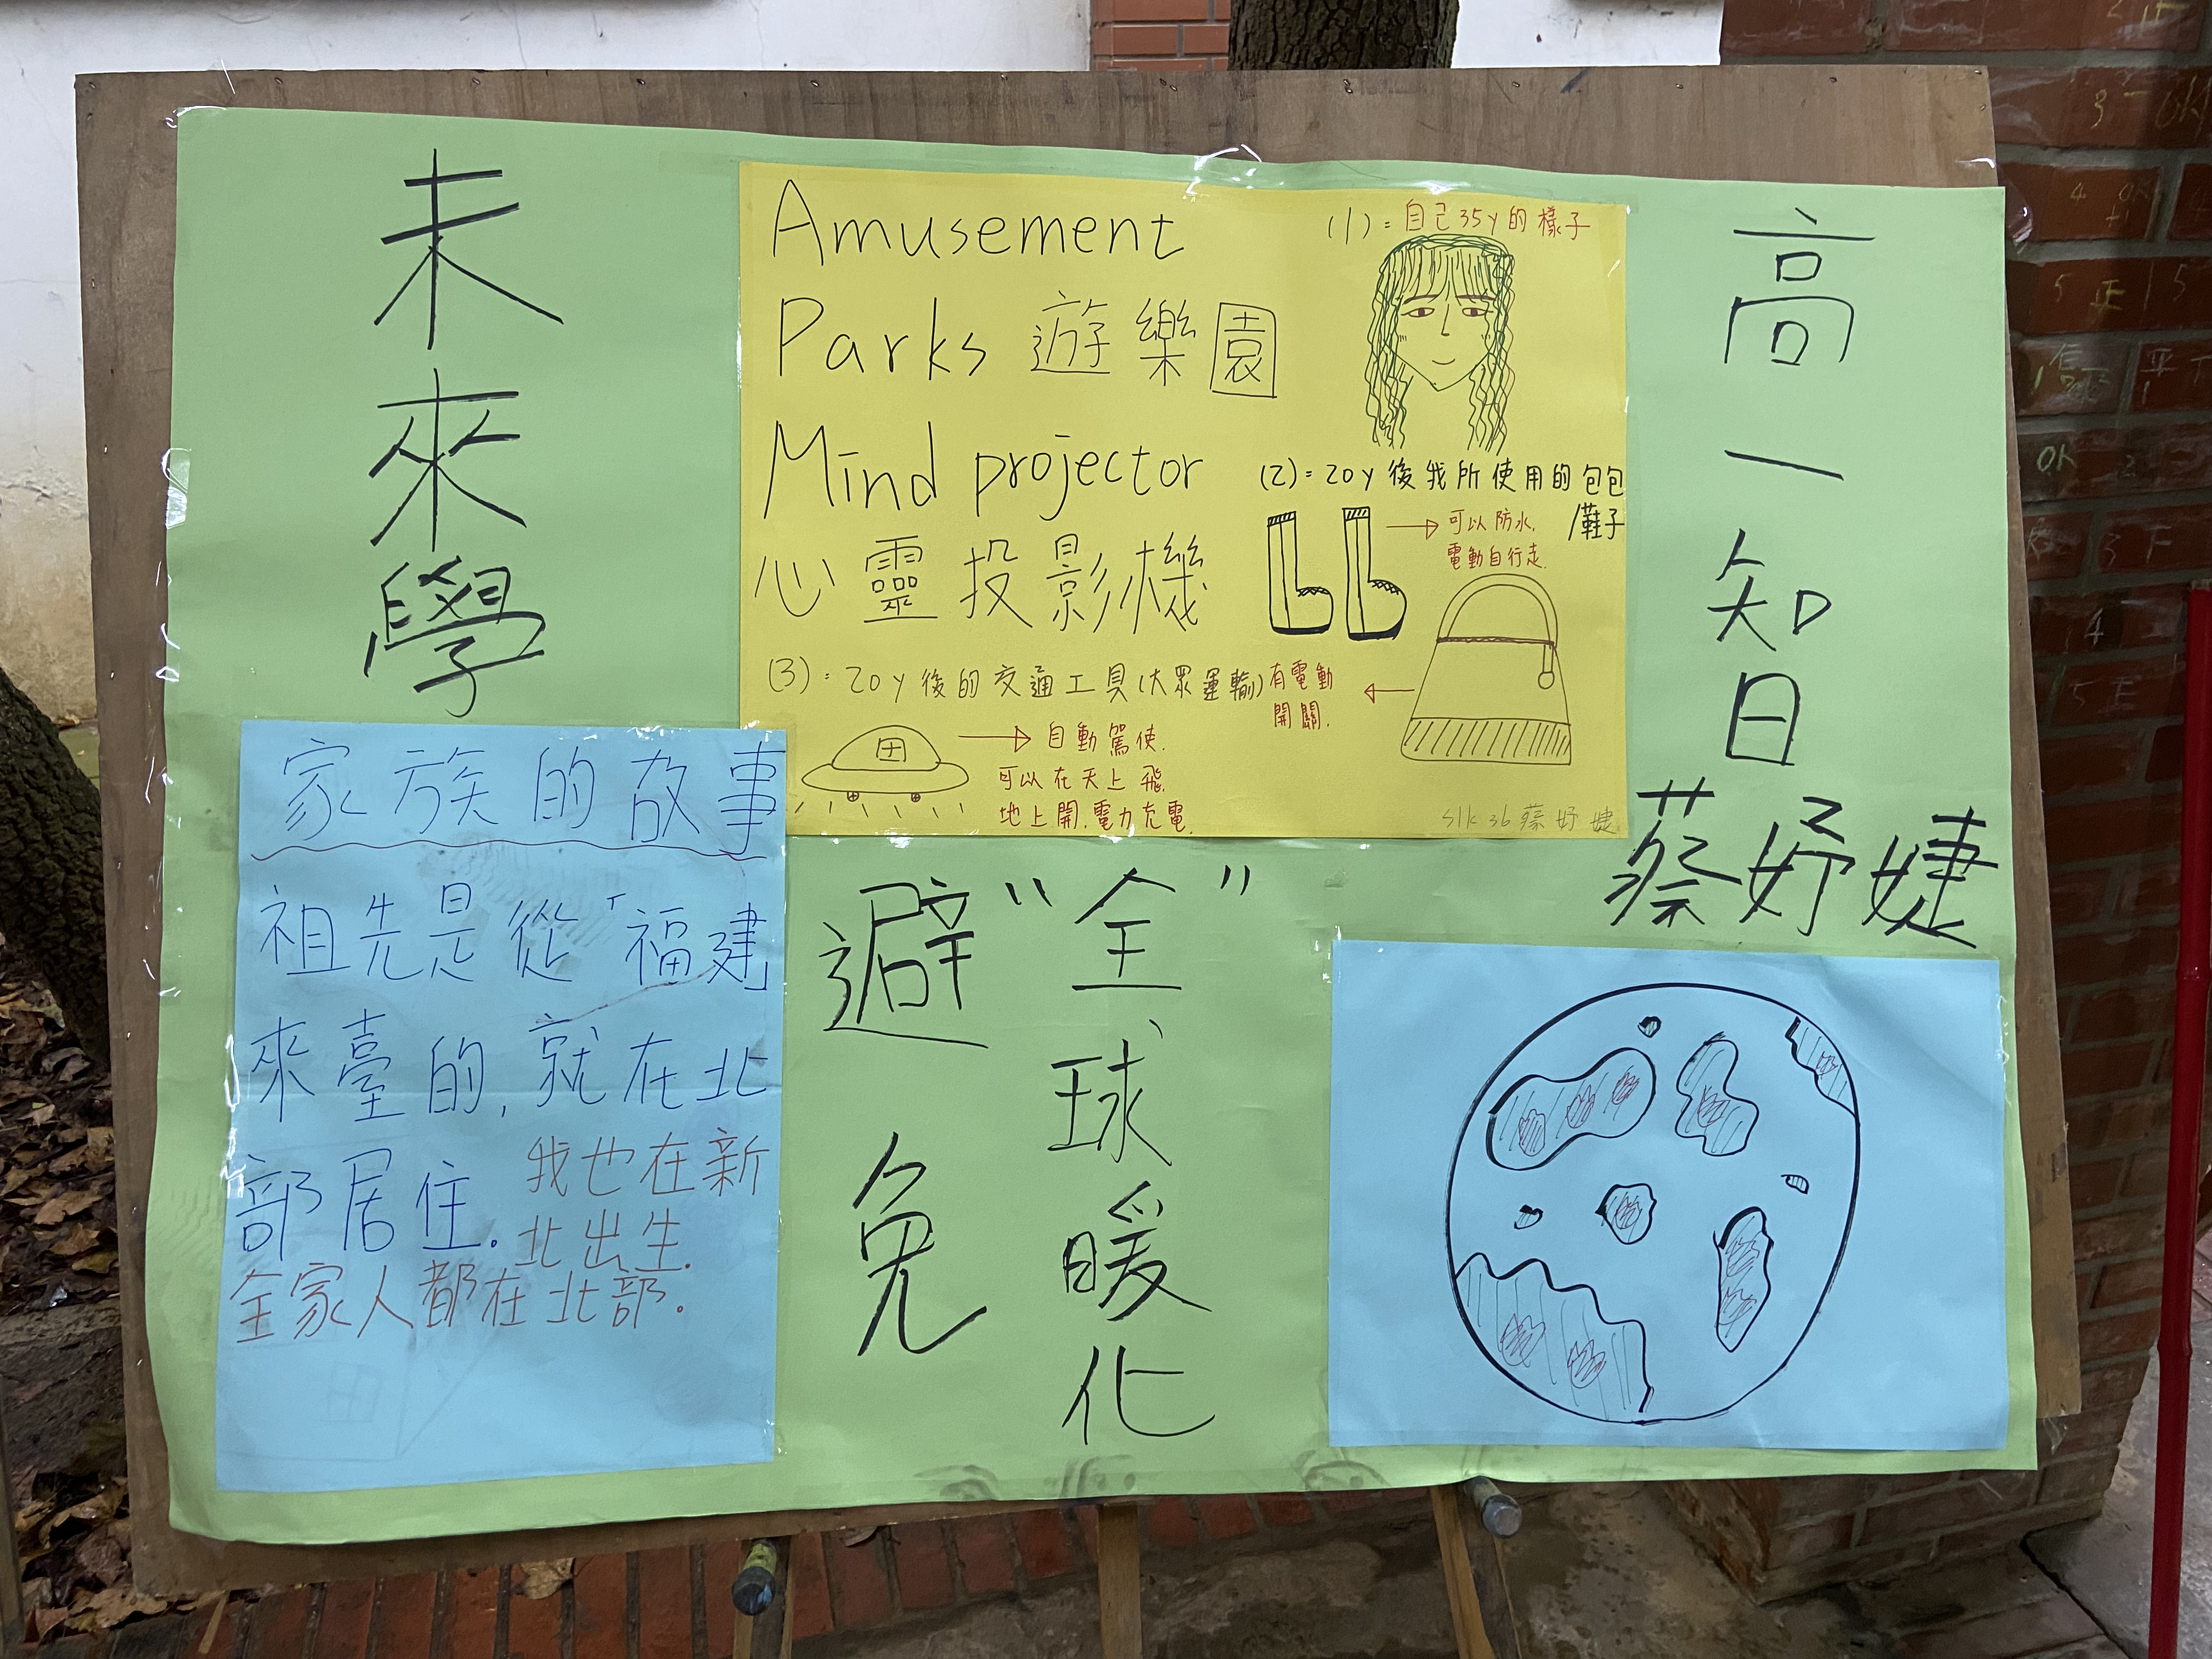 未來學
Amusement
Parks 遊樂園
Mind projector
心靈投影機
(1)=自己35y的樣子
(2)=20y後我所使用的包包
/鞋子
可以防水.
電動自行走.
有電動
開關.
(3)=20y後的交通工具(大眾運輸)
自動駕使.
可以在天上飛.
地上開.電力充電.
s1k36蔡妤婕
高一知日
蔡妤婕
家族的故事
祖先是從「福建」
來臺的,就在北
部居住.
我也在新
北出生.
全家人都在北部.
避免
"全球暖化"